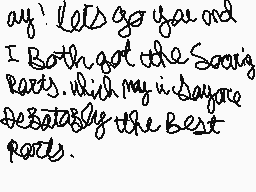 ay! Lets go you and
I Both got the Saving
Parts. which may i Sayare
Debatably the Best
Parts.